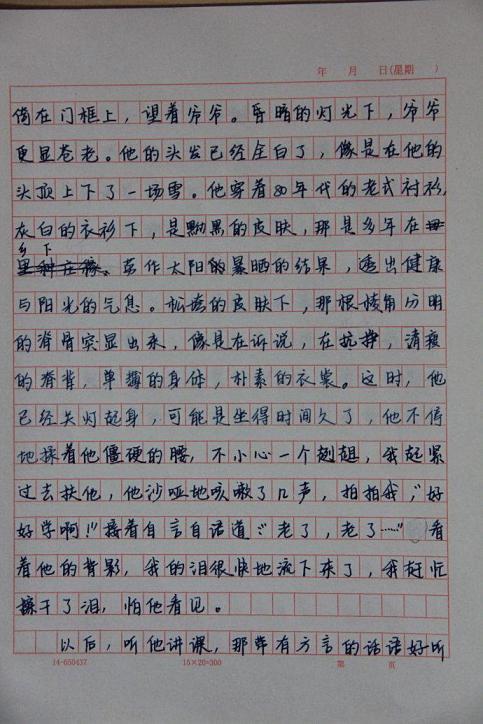 年 月 日(星期 )
倚在门框上，望着爷爷。昏暗的灯光下，爷爷
更显苍老。他的头发已经全白了，像是在他的
头顶上下了一场雪。他穿着80年代的老式衬衫，
灰白的衣衫下，是黝黑的皮肤，那是多年在
乡下
劳作太阳的暴晒的结果，透出健康
与阳光的气息。松垮的皮肤下，那根棱角分明
的脊骨突显出来，像是在诉说，在抗挣，清瘦
的脊背，单薄的身体，朴素的衣裳。这时，他
已经关灯起身，可能是坐得时间久了，他不停
地揉着他僵硬的腰，不小心一个趔趄，我赶紧
过去扶他，他沙哑地咳嗽了几声，拍拍我，"好
好学啊！"接着自言自语道："老了，老了……"看
着他的背影，我的泪很快地流下来了，我赶忙
擦干了泪，怕他看见。
以后，听他讲课，那带有方言的话语好听
14-650437 15×20=300 第 页